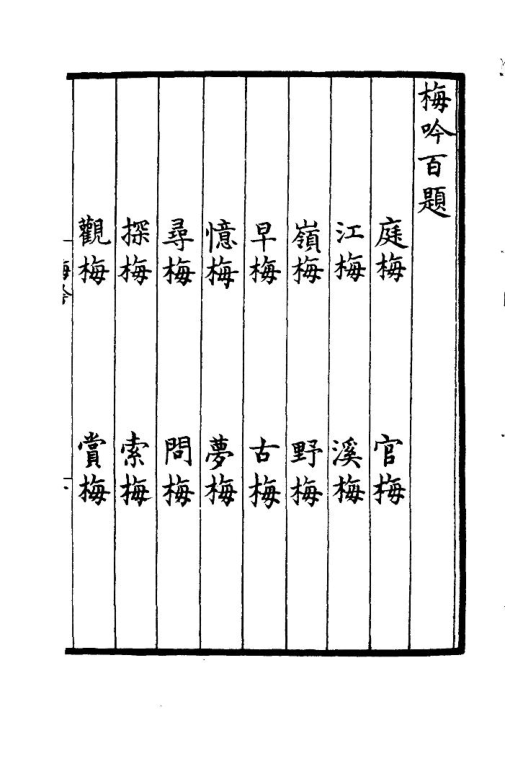 梅吟百題
庭梅 官梅
江梅 溪梅
嶺梅 野梅
早梅 古梅
憶梅 夢梅
尋梅 問梅
探梅 索梅
觀梅 賞梅